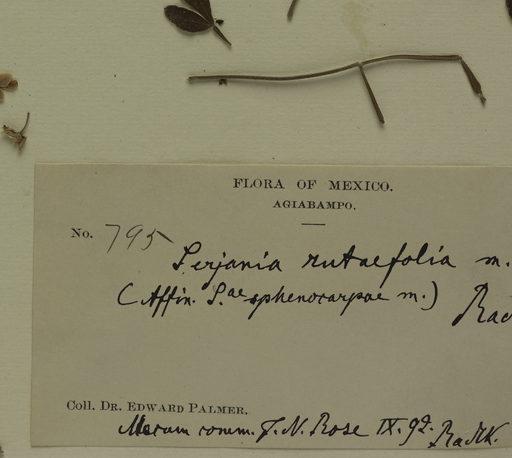 FLORA OF MEXICO.
AGIABAMPO.
No. 795
Serjania rutaefolia m.
(Affin. S.ae sphenocarpae m.) Rad
Coll. DR. EDWARD PALMER.
comm. J. N. Rose IX. 92. Radlk.